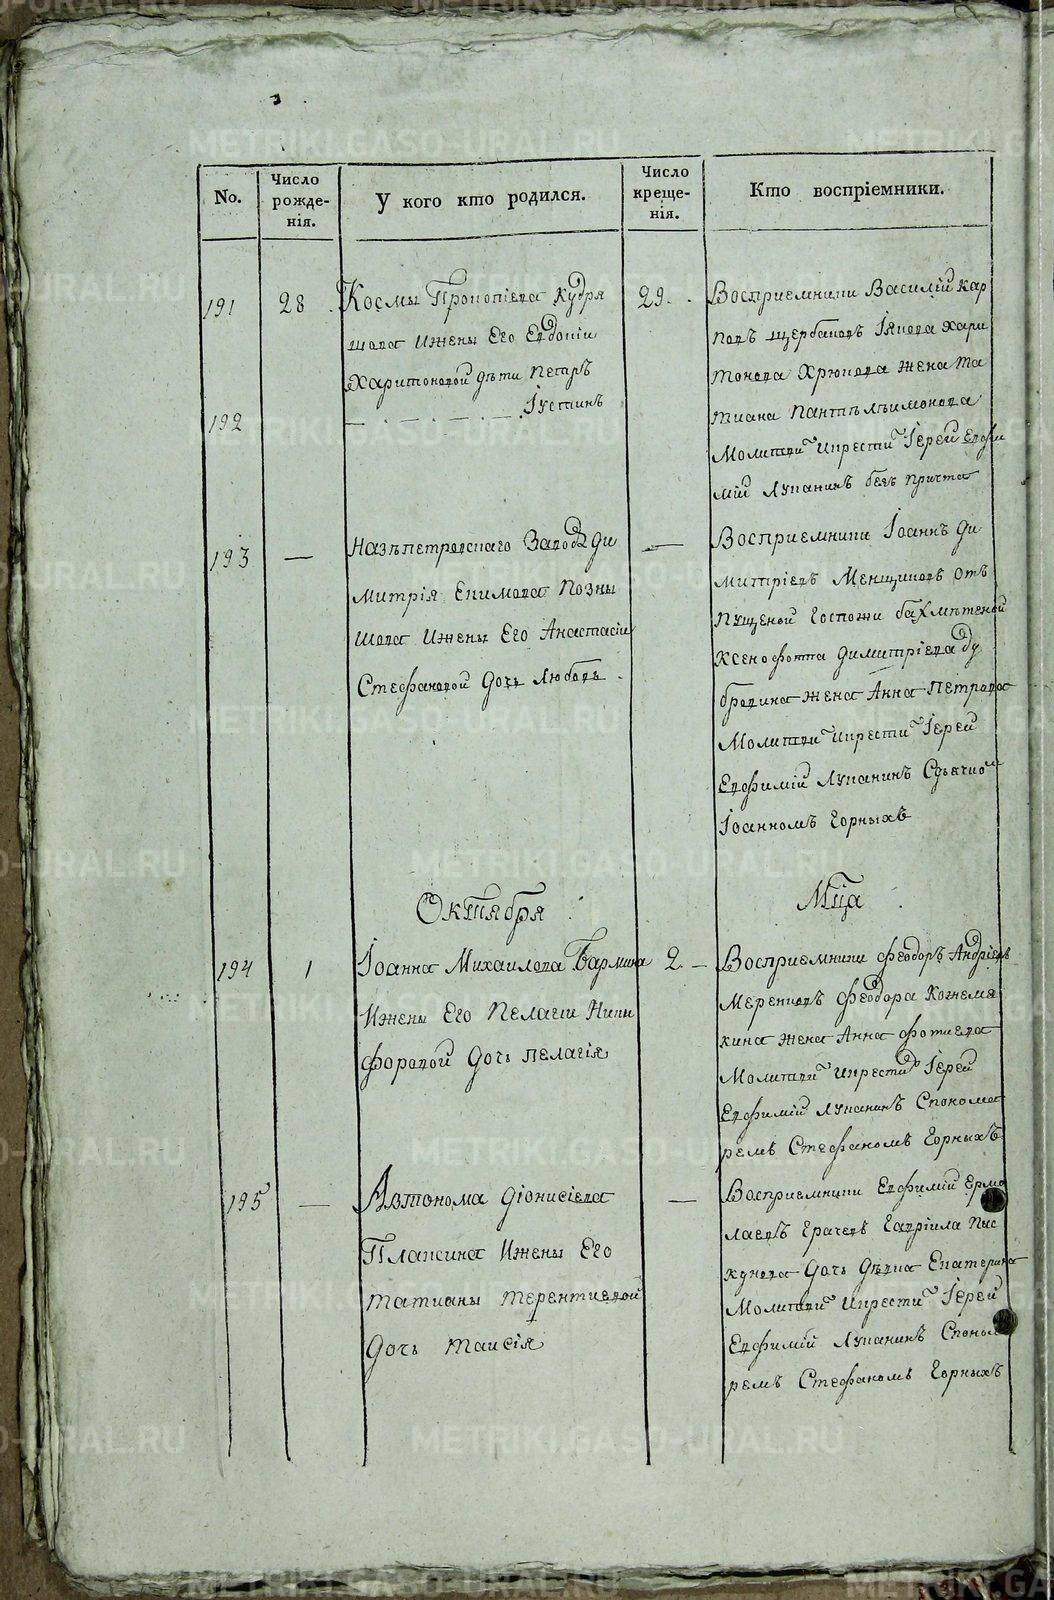 No.
Число рожде-нія.
У кого кто родился.
Число креще-нія.
Кто воспріемники.
191
28
Космы Прокопіева Кудря
шова Ижены Его Евдокіи
Харитоновой дѣти Петръ
192
Іустинъ
29.
Восприемники Василій кар
повъ щербаковъ Іякова хари
тонова Хрюкова жена та
тиана пантѣлѣимонова
Молитви икрести Іерей Ефи
мій Лупанинъ безъ причта
193
—
Назѣпетровскаго Завода ди
митрія Екимова Позны
шова Ижены Его Анастасіи
Стефановой дочь Любовь.
—
Восприемники Іоаннъ ди
митріевъ Менщиковъ отъ
пущеной Госпожи бахметевой
Ксенофонта димитріева ду
бровина жена Анна Петрова
Молитви икрести Іерей
Евфимій Лупанинъ Сдьячко
Іоанномъ Горныхъ
Октября
Мца
194
1
Іоанна Михаилова Бармина
Ижены Его Пелагіи Ники
форовой дочь пелагія
2 —
Восприемники феодоръ Андріевъ
Меренковъ феодора Кожемя
кина жена Анна фотиева
Молитви икрести Іерей
Евфимій лупанинъ Спонома
ремъ Стефаномъ Горныхъ
195
—
Автонома діонисіева
Плаксина Ижены Его
татианы терентиевой
дочь таисія
—
Восприемники Евфимій Ермо
лаевъ Грачевъ Гавріила Пис
кунова дочь дѣвка Екатерина
Молитви икрести Іерей
Евфимій Лупанинъ Спонома
ремъ Стефаномъ Горныхъ
METRIKI.GASO-URAL.RU